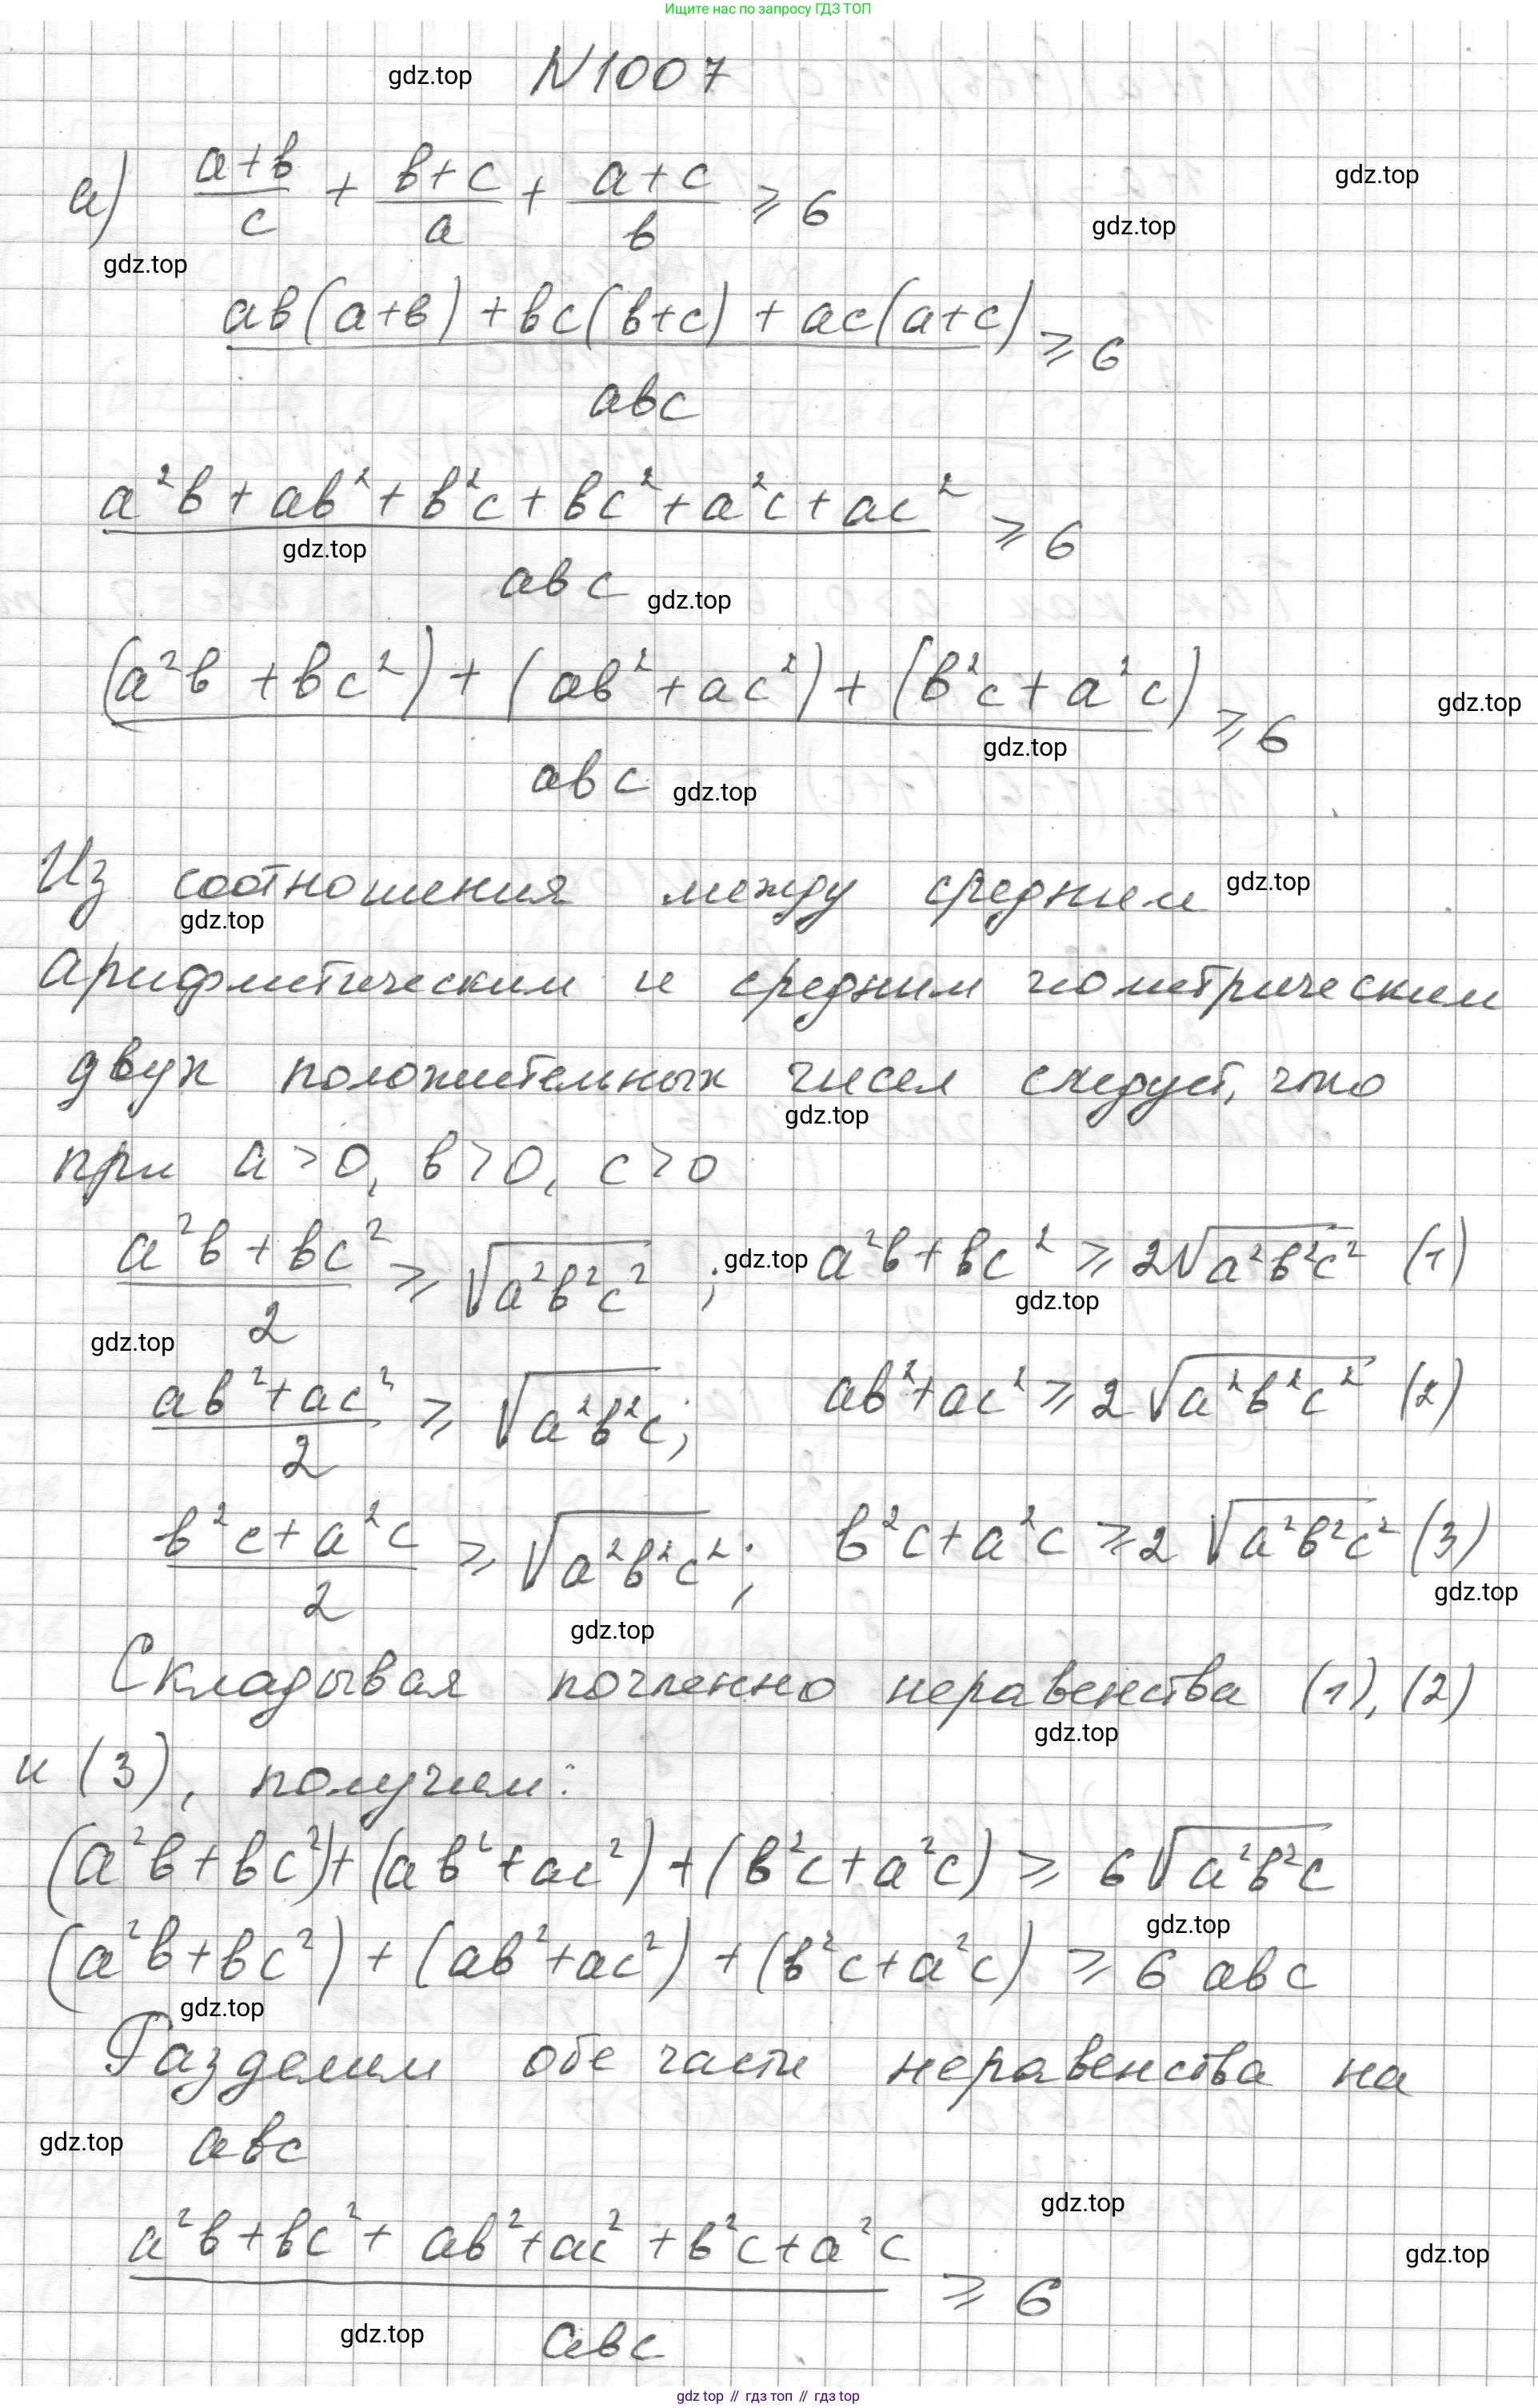 Ищите нас по запросу ГДЗ ТОП
gdz.top N 1007
а) (a+b)/c + (b+c)/a + (a+c)/b ⩾ 6
gdz.top
gdz.top
gdz.top
(ab(a+b) + bc(b+c) + ac(a+c))/abc ⩾ 6
(a²b + ab² + b²c + bc² + a²c + ac²)/abc ⩾ 6
gdz.top
gdz.top
((a²b + bc²) + (ab² + ac²) + (b²c + a²c))/abc ⩾ 6
gdz.top
gdz.top
gdz.top
Из соотношения между средним
gdz.top
gdz.top
арифметическим и средним геометрическим
двух положительных чисел следует, что
gdz.top
при a > 0, b > 0, c > 0
(a²b + bc²)/2 ⩾ √(a²b²c²) ; gdz.top a²b + bc² ⩾ 2√(a²b²c²) (1)
gdz.top
gdz.top
(ab² + ac²)/2 ⩾ √(a²b²c); ab² + ac² ⩾ 2√(a²b²c²) (2)
(b²c + a²c)/2 ⩾ √(a²b²c²); b²c + a²c ⩾ 2√(a²b²c²) (3)
gdz.top
gdz.top
Складывая почленно неравенства (1), (2)
gdz.top
и (3), получим:
(a²b + bc²) + (ab² + ac²) + (b²c + a²c) ⩾ 6√(a²b²c)
gdz.top
(a²b + bc²) + (ab² + ac²) + (b²c + a²c) ⩾ 6 abc
gdz.top
Разделим обе части неравенства на
gdz.top abc
gdz.top
(a²b + bc² + ab² + ac² + b²c + a²c)/abc ⩾ 6
gdz.top
gdz.top
gdz top // гдз топ // гдз top